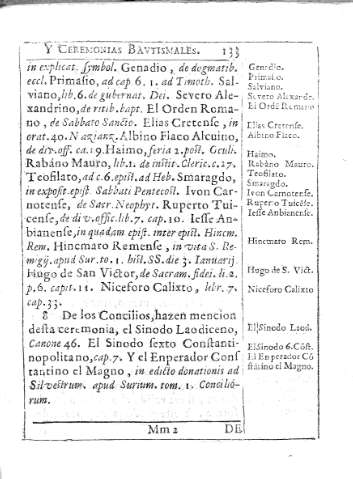 Y CEREMONIAS BAVTISMALES. 133
in explicat. symbol. Genadio, de dogmatib.
eccl. Primasio, ad cap 6. 1. ad Timoth. Sal-
viano, lib. 6. de gubernat. Dei. Severo Ale-
xandrino, de ritib. bapt. El Orden Roma-
no, de Sabbato Sancto. Elias Cretense, in
orat. 40. Nazianz. Albino Flaco Alcuino,
de div. off. ca. 19. Haimo, feria 2. post.
Rabáno Mauro, lib. 1. de instit. Cleric. c. 27.
Teofilato, ad c. 6. epist. ad Heb. Smaragdo,
in expost. epist. Sabbati Pentecost. Ivon Car-
notense, de Sacr. Neophyt. Ruperto Tui-
cense, de div. offic. lib. 7. cap. 10. Iesse An-
bianense, in quadam epist. inter epist. Hincm.
Rem. Hincmaro Remense, in vita S. Re-
migij. apud Sur. to. 1. hist. SS. die 3. Ianuarij.
Hugo de San Victor, de Sacram. fidei. li. 2.
p. 6. capit. 11. Niceforo Calixto, libr. 7.
cap. 33.
8 De los Concilios, hazen mencion
desta ceremonia, el Sinodo Laodiceno,
Canone 46. El Sinodo sexto Constanti-
nopolitano, cap. 7. Y el Enperador Cons
tantino el Magno, in edicto donationis ad
Silvestrum. apud Surium. tom. 1. Conciliô-
rum.
Mm 2 DE
Genadio.
Primasio.
Salviano.
Severo Alexandr.
El Ordé Romano
Elias Cretense.
Albino Flaco.
Haimo.
Rabáno Mauro.
Teofilato.
Smaragdo.
Ivon Carnotense.
Ruperto Tuicése.
Iesse Anbianense.
Hincmaro Rem.
Hugo de S. Vict.
Niceforo Calixto
El Sinodo Laod.
El Sinodo 6. Cõst.
El Enperador Cõ
stãtino el Magno.